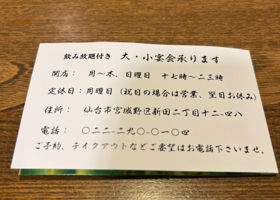 飲み放題付き 大・小宴会承ります
開店： 月〜木、日曜日 十七時〜二三時
定休日：月曜日(祝日の場合は営業、翌日お休み)
住所： 仙台市宮城野区新田二丁目十二-四八
電話： 〇二二-二九〇-〇一〇四
ご予約、テイクアウトなどご要望はお電話下さいませ。